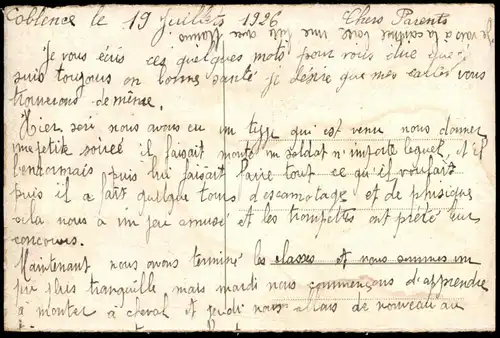 Coblence le 19 Juillets 1926 Chers Parents
Je vous écris ces quelques mots pour vous dire que je
suis toujours en bonne santé je désire que mes cartes vous
trouverons de même.
Hier soir nous avons eu un type qui est venu nous donner
une petite soirée il faisait monté un soldat n'importe lequel, et il
l'endormais puis lui faisait faire tout ce qu'il voulait
puis il a fait quelque tours d'escamotage et de phisique
cela nous a un peu amusé et les trompettes ont prêté leur
concours.
Maintenant nous avons terminé les classes et nous sommes un
peu plus tranquille mais mardi nous commençons d'apprendre
à monter à cheval et jeudi nous allons de nouveau au